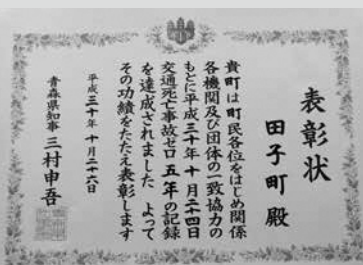 表彰状
田子町殿
貴町は町民各位をはじめ関係
各機関及び団体の一致協力の
もとに平成三十年十月二十四日
交通死亡事故ゼロ五年の記録
を達成されました よって
その功績をたたえ表彰します
平成三十年十月二十六日
青森県知事 三村申吾